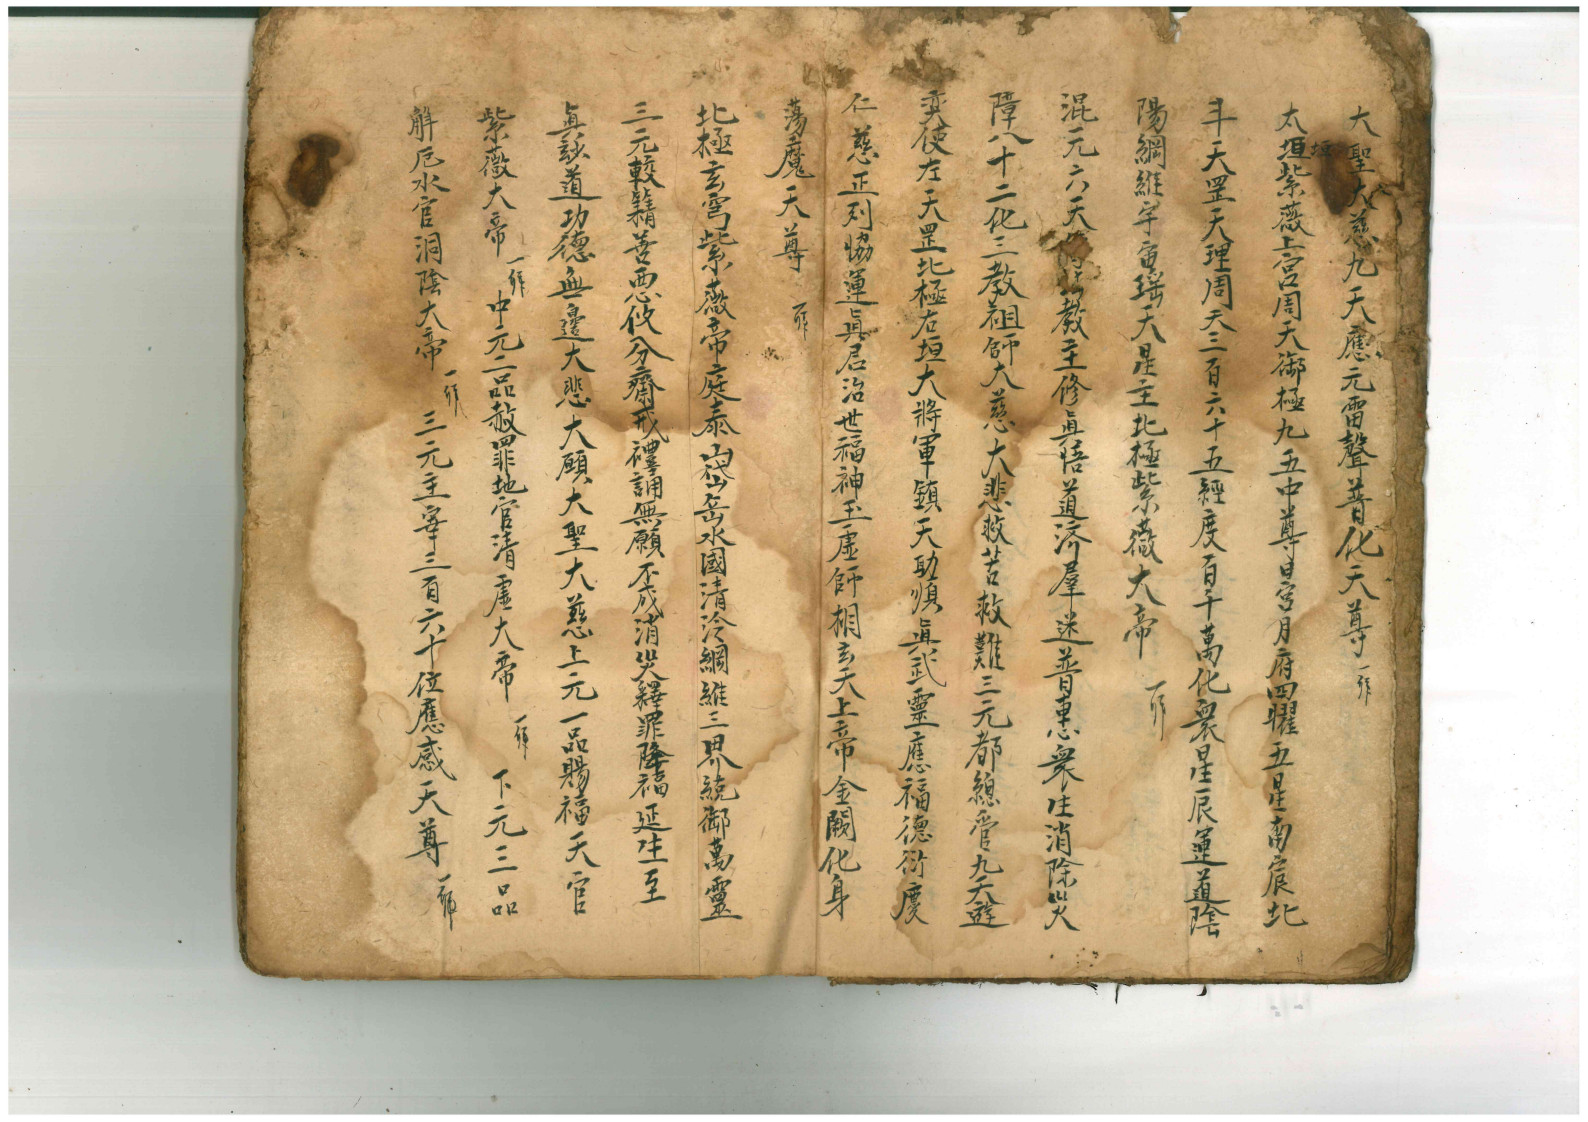 大聖大慈九天應元雷聲普化天尊 一拜
太垣紫薇上宮周天御極九五中尊日宮月府四曜五星南宸北
斗天罡天理周天三百六十五經度百千萬化衆星辰運道陰
陽綱維宇宙瑤天星主北極紫薇大帝 一拜
混元六天教主修眞悟道济羣迷普惠衆生消除災
障八十二化三教祖師大慈大悲救苦救難三元都總管九天遊
奕使左天罡北極右垣大將軍鎮天助順眞武靈應福德衍慶
仁慈正列協運眞君治世福神玉虛師相玄天上帝金闕化身
蕩魔天尊 一拜
北極玄穹紫薇帝庭泰山岱岳水國清泠綱維三界統御萬靈
三元較籍善悪攸分齋戒禮誦無願不成消災釋罪降福延生至
眞妙道功德無邊大悲大願大聖大慈上元一品賜福天官
紫薇大帝 一拜 中元二品赦罪地官清虛大帝 一拜 下元三品
解厄水官洞陰大帝 一拜 三元主宰三百六十位應感天尊 一拜